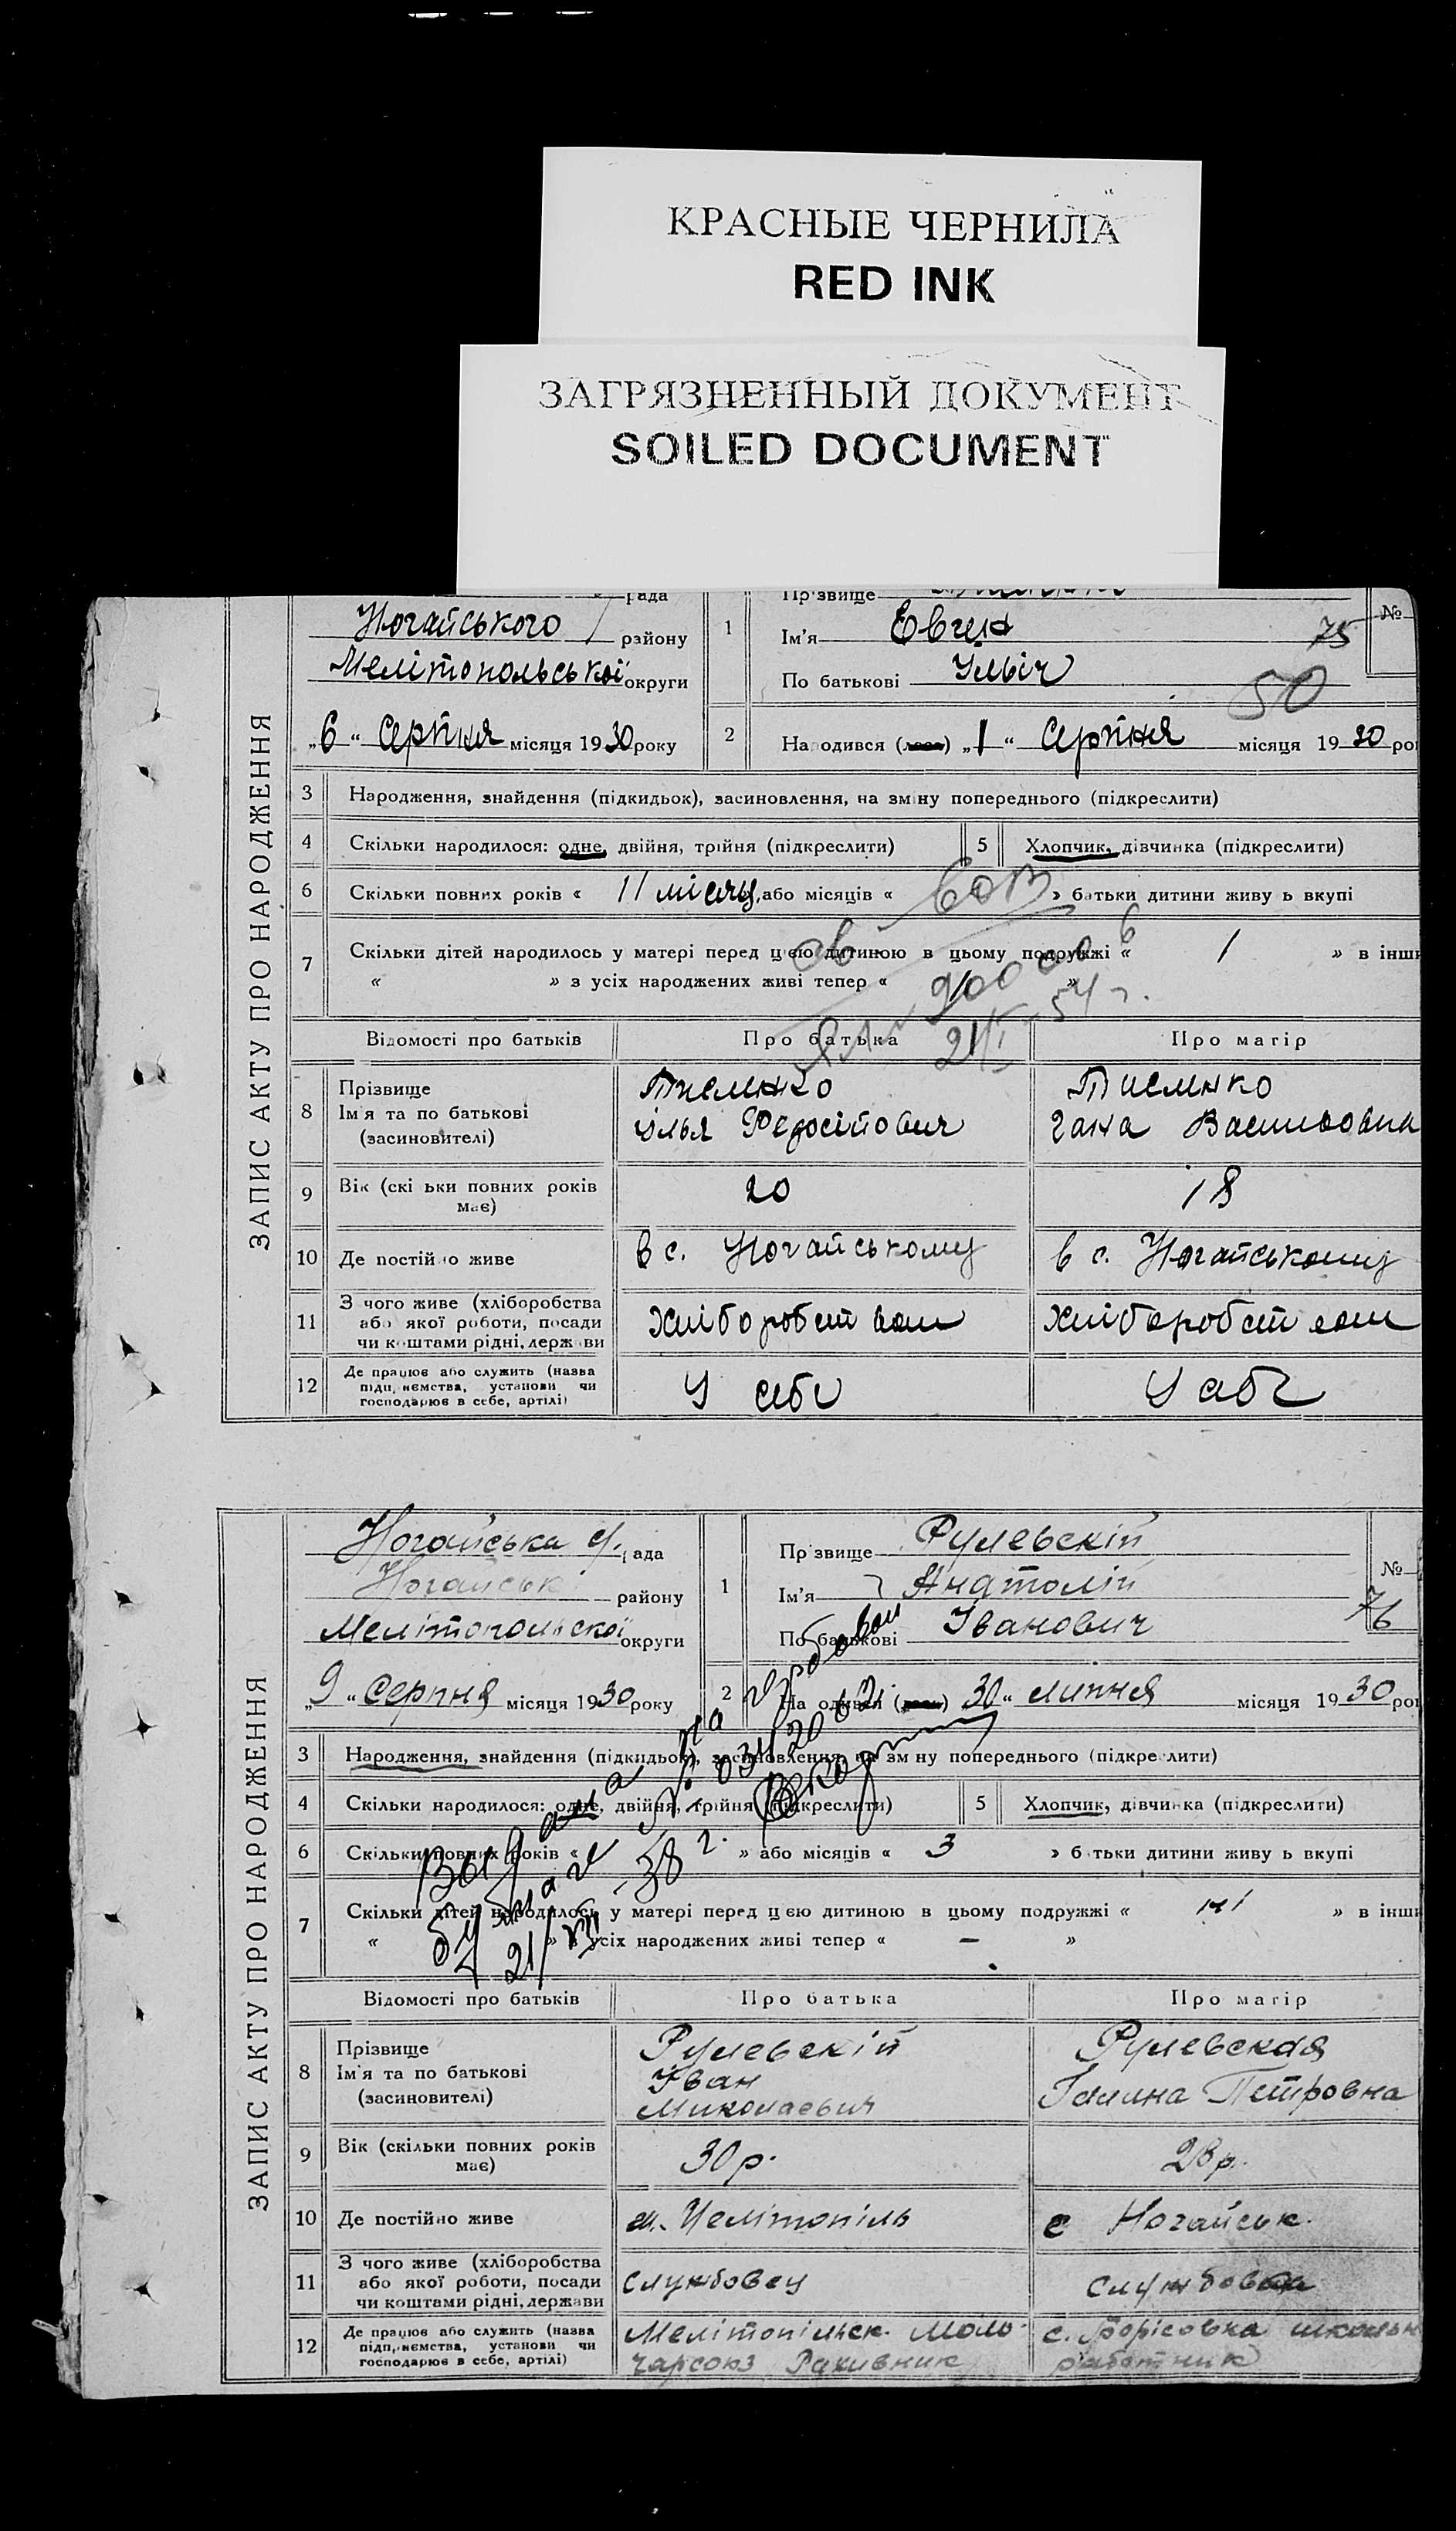 КРАСНЫЕ ЧЕРНИЛА
RED INK
ЗАГРЯЗНЕННЫЙ ДОКУМЕНТ
SOILED DOCUMENT
ЗАПИС АКТУ ПРО НАРОДЖЕННЯ
рада
Ногайського району
Мелітопольської округи
„6“ Серпня місяця 1930 року
1
Прізвище
Ім'я Евген
По батькові Ільіч
№
75
50
2
Народився „1“ Серпня місяця 1930 ро
3 Народження, знайдення (підкидьок), засиновлення, на зміну попереднього (підкреслити)
4 Скільки народилося: одне, двійня, трійня (підкреслити)
5 Хлопчик, дівчинка (підкреслити)
6 Скільки повних років « 11 місяц. або місяців « » батьки дитини живуть вкупі
7 Скільки дітей народилось у матері перед цією дитиною в цьому подружжі « 1 » в інши
« » з усіх народжених живі тепер « »
Відомості про батьків Про батька Про матір
8 Прізвище
Ім'я та по батькові
(засиновителі)
Писменко
Ілья Федосійович
Писменко
Гана
9 Вік (скільки повних років має)
20
18
10 Де постійно живе
в с. Ногайському
в с. Ногайському
11 З чого живе (хліборобства або якої роботи, посади чи коштами рідні, держави
Хліборобством
Хліборобством
12 Де працює або служить (назва підприємства, установи чи господарює в себе, артілі)
У себе
У себе
ЗАПИС АКТУ ПРО НАРОДЖЕННЯ
Ногайська с. рада
Ногайськ району
Мелітопольской округи
„9“ Серпня місяця 1930 року
1
Прізвище Рулевскій
Ім'я Анатолій
По батькові Іванович
№
76
2
Народився 30“ липня місяця 1930 ро
Выдана на
21/VIII-38 г.
3 Народження, знайдення (підкидьок), засиновлення, на зміну попереднього (підкреслити)
4 Скільки народилося: одне, двійня, трійня (підкреслити)
5 Хлопчик, дівчинка (підкреслити)
6 Скільки повних років « » або місяців « 3 » батьки дитини живуть вкупі
7 Скільки дітей народилось у матері перед цією дитиною в цьому подружжі « » в інши
« » з усіх народжених живі тепер « – »
Відомості про батьків Про батька Про матір
8 Прізвище
Ім'я та по батькові
(засиновителі)
Рулевскій
Іван
Миколаевич
Рулевская
Галина Петровна
9 Вік (скільки повних років має)
30 р.
23 р.
10 Де постійно живе
м. Мелітопіль
с Ногайськ.
11 З чого живе (хліборобства або якої роботи, посади чи коштами рідні, держави
Службовец
Службовка
12 Де працює або служить (назва підприємства, установи чи господарює в себе, артілі)
Мелітопільск. Моло-
чарсоюз Рахивник
с. Борісовка школьн
работник